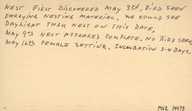 NEST FIRST DISCOVERED MAY 3RD, BIRD SEEN
CARRYING NESTING MATERIAL, WE COULD SEE
DAYLIGHT THRU NEST ON THIS DATE,
MAY 9TH NEST APPEARED COMPLETE, NO BIRD SEEN,
MAY 16TH FEMALE SETTING, INCUBATION 3-4 DAYS.